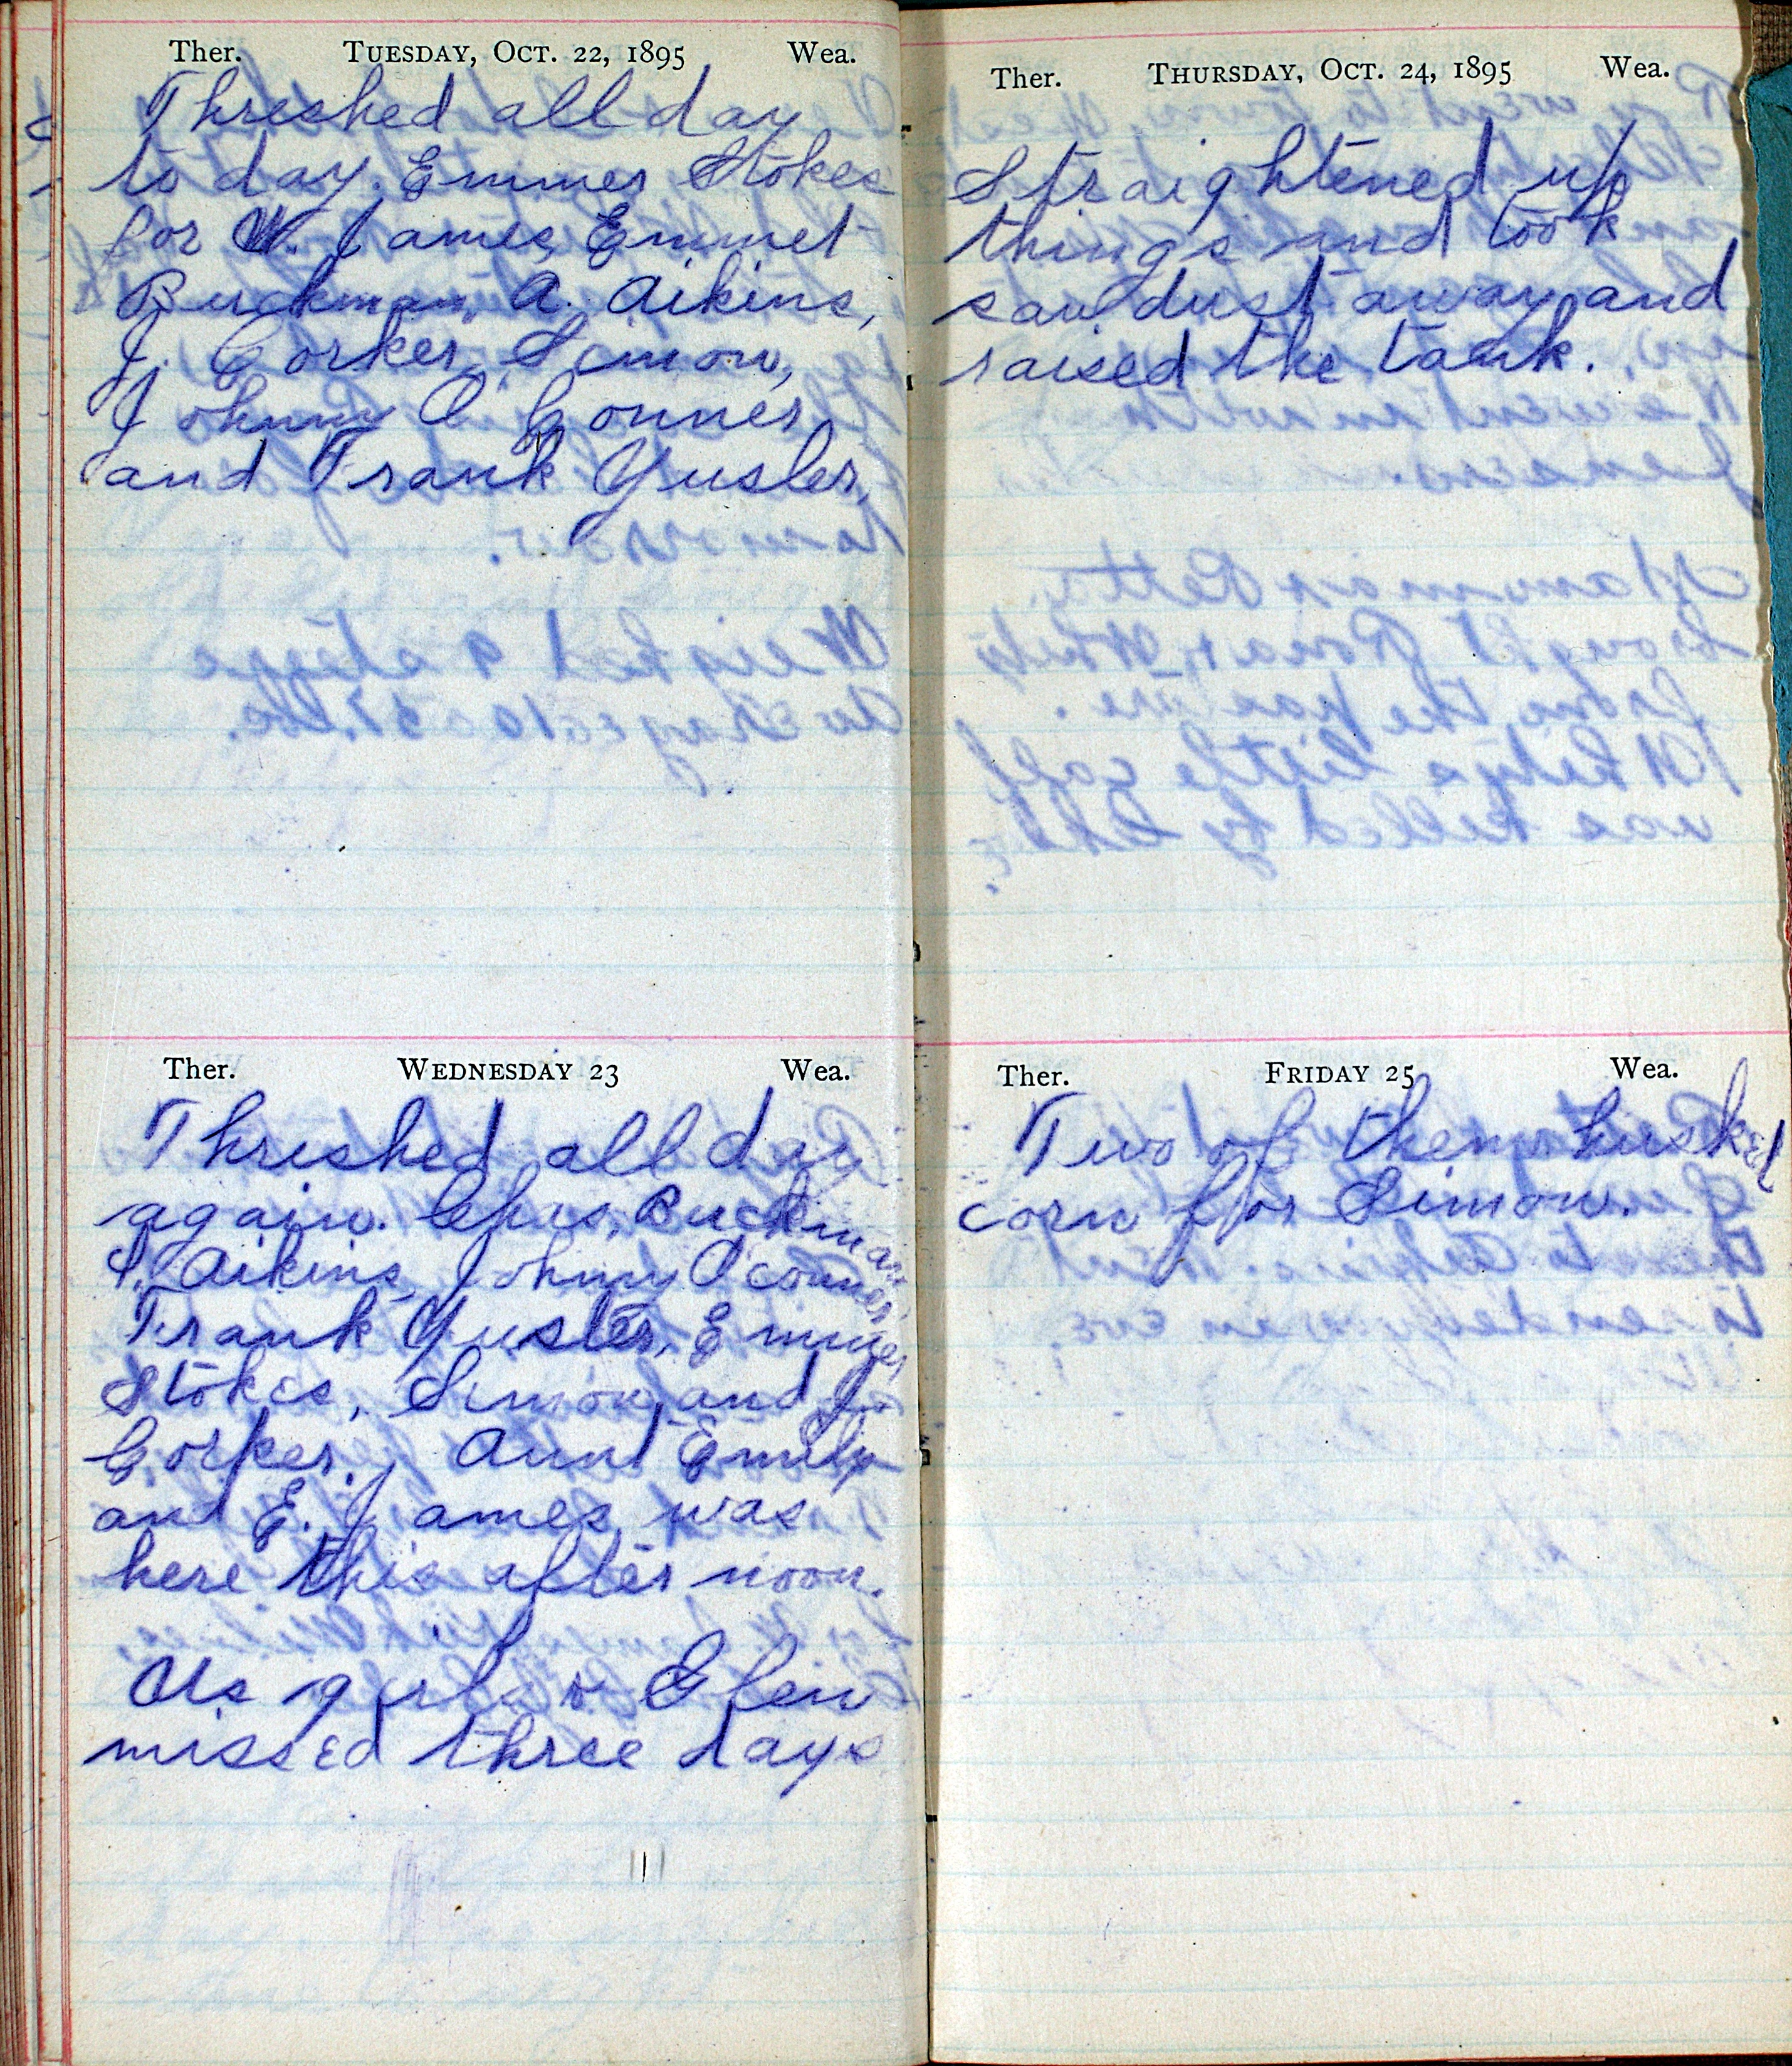 Ther. TUESDAY, OCT. 22, 1895 Wea.
Threshed all day
to day. Emmer Stokes
for W. James, Emmet
Buckman, A. Aikins,
J. Corker, Simon,
Johnny O'Conner,
and Frank Yusler,
Ther. WEDNESDAY 23 Wea.
Threshed all day
again. Buckman
Aikins, Johnny O'conner,
Frank Yusler, Emmer
Stokes, Simon, and J.
Corker. Aunt Emily
and E. James was
here this after noon.
Us girls & Glen
missed three days
Ther. THURSDAY, OCT. 24, 1895 Wea.
Straightened up
things and took
saw dust away and
raised the tank.
Ther. FRIDAY 25 Wea.
Two of them husked
corn for Simon.